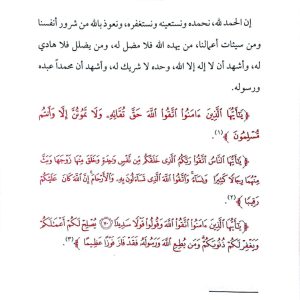 إن الحمد لله، نحمده ونستعينه ونستغفره، ونعوذ بالله من شرور أنفسنا
ومن سيئات أعمالنا، من يهده الله فلا مضل له، ومن يضلل فلا هادي
له، وأشهد أن لا إله إلا الله، وحده لا شريك له، وأشهد أن محمداً عبده
ورسوله.
﴿يَٰٓأَيُّهَا ٱلَّذِينَ ءَامَنُوا۟ ٱتَّقُوا۟ ٱللَّهَ حَقَّ تُقَاتِهِۦ وَلَا تَمُوتُنَّ إِلَّا وَأَنتُم
مُّسْلِمُونَ﴾(١).
﴿يَٰٓأَيُّهَا ٱلنَّاسُ ٱتَّقُوا۟ رَبَّكُمُ ٱلَّذِى خَلَقَكُم مِّن نَّفْسٍ وَٰحِدَةٍ وَخَلَقَ مِنْهَا زَوْجَهَا وَبَثَّ
مِنْهُمَا رِجَالًا كَثِيرًا وَنِسَآءً وَٱتَّقُوا۟ ٱللَّهَ ٱلَّذِى تَسَآءَلُونَ بِهِۦ وَٱلْأَرْحَامَ إِنَّ ٱللَّهَ كَانَ عَلَيْكُمْ
رَقِيبًا﴾(٢).
﴿يَٰٓأَيُّهَا ٱلَّذِينَ ءَامَنُوا۟ ٱتَّقُوا۟ ٱللَّهَ وَقُولُوا۟ قَوْلًا سَدِيدًا ۝٧٠ يُصْلِحْ لَكُمْ أَعْمَٰلَكُمْ
وَيَغْفِرْ لَكُمْ ذُنُوبَكُمْ وَمَن يُطِعِ ٱللَّهَ وَرَسُولَهُۥ فَقَدْ فَازَ فَوْزًا عَظِيمًا﴾(٣).